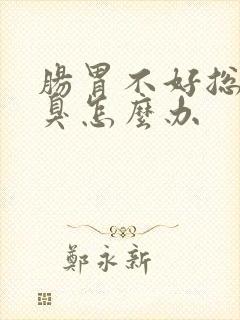 腸胃不好
臭怎麼办
鄭永新